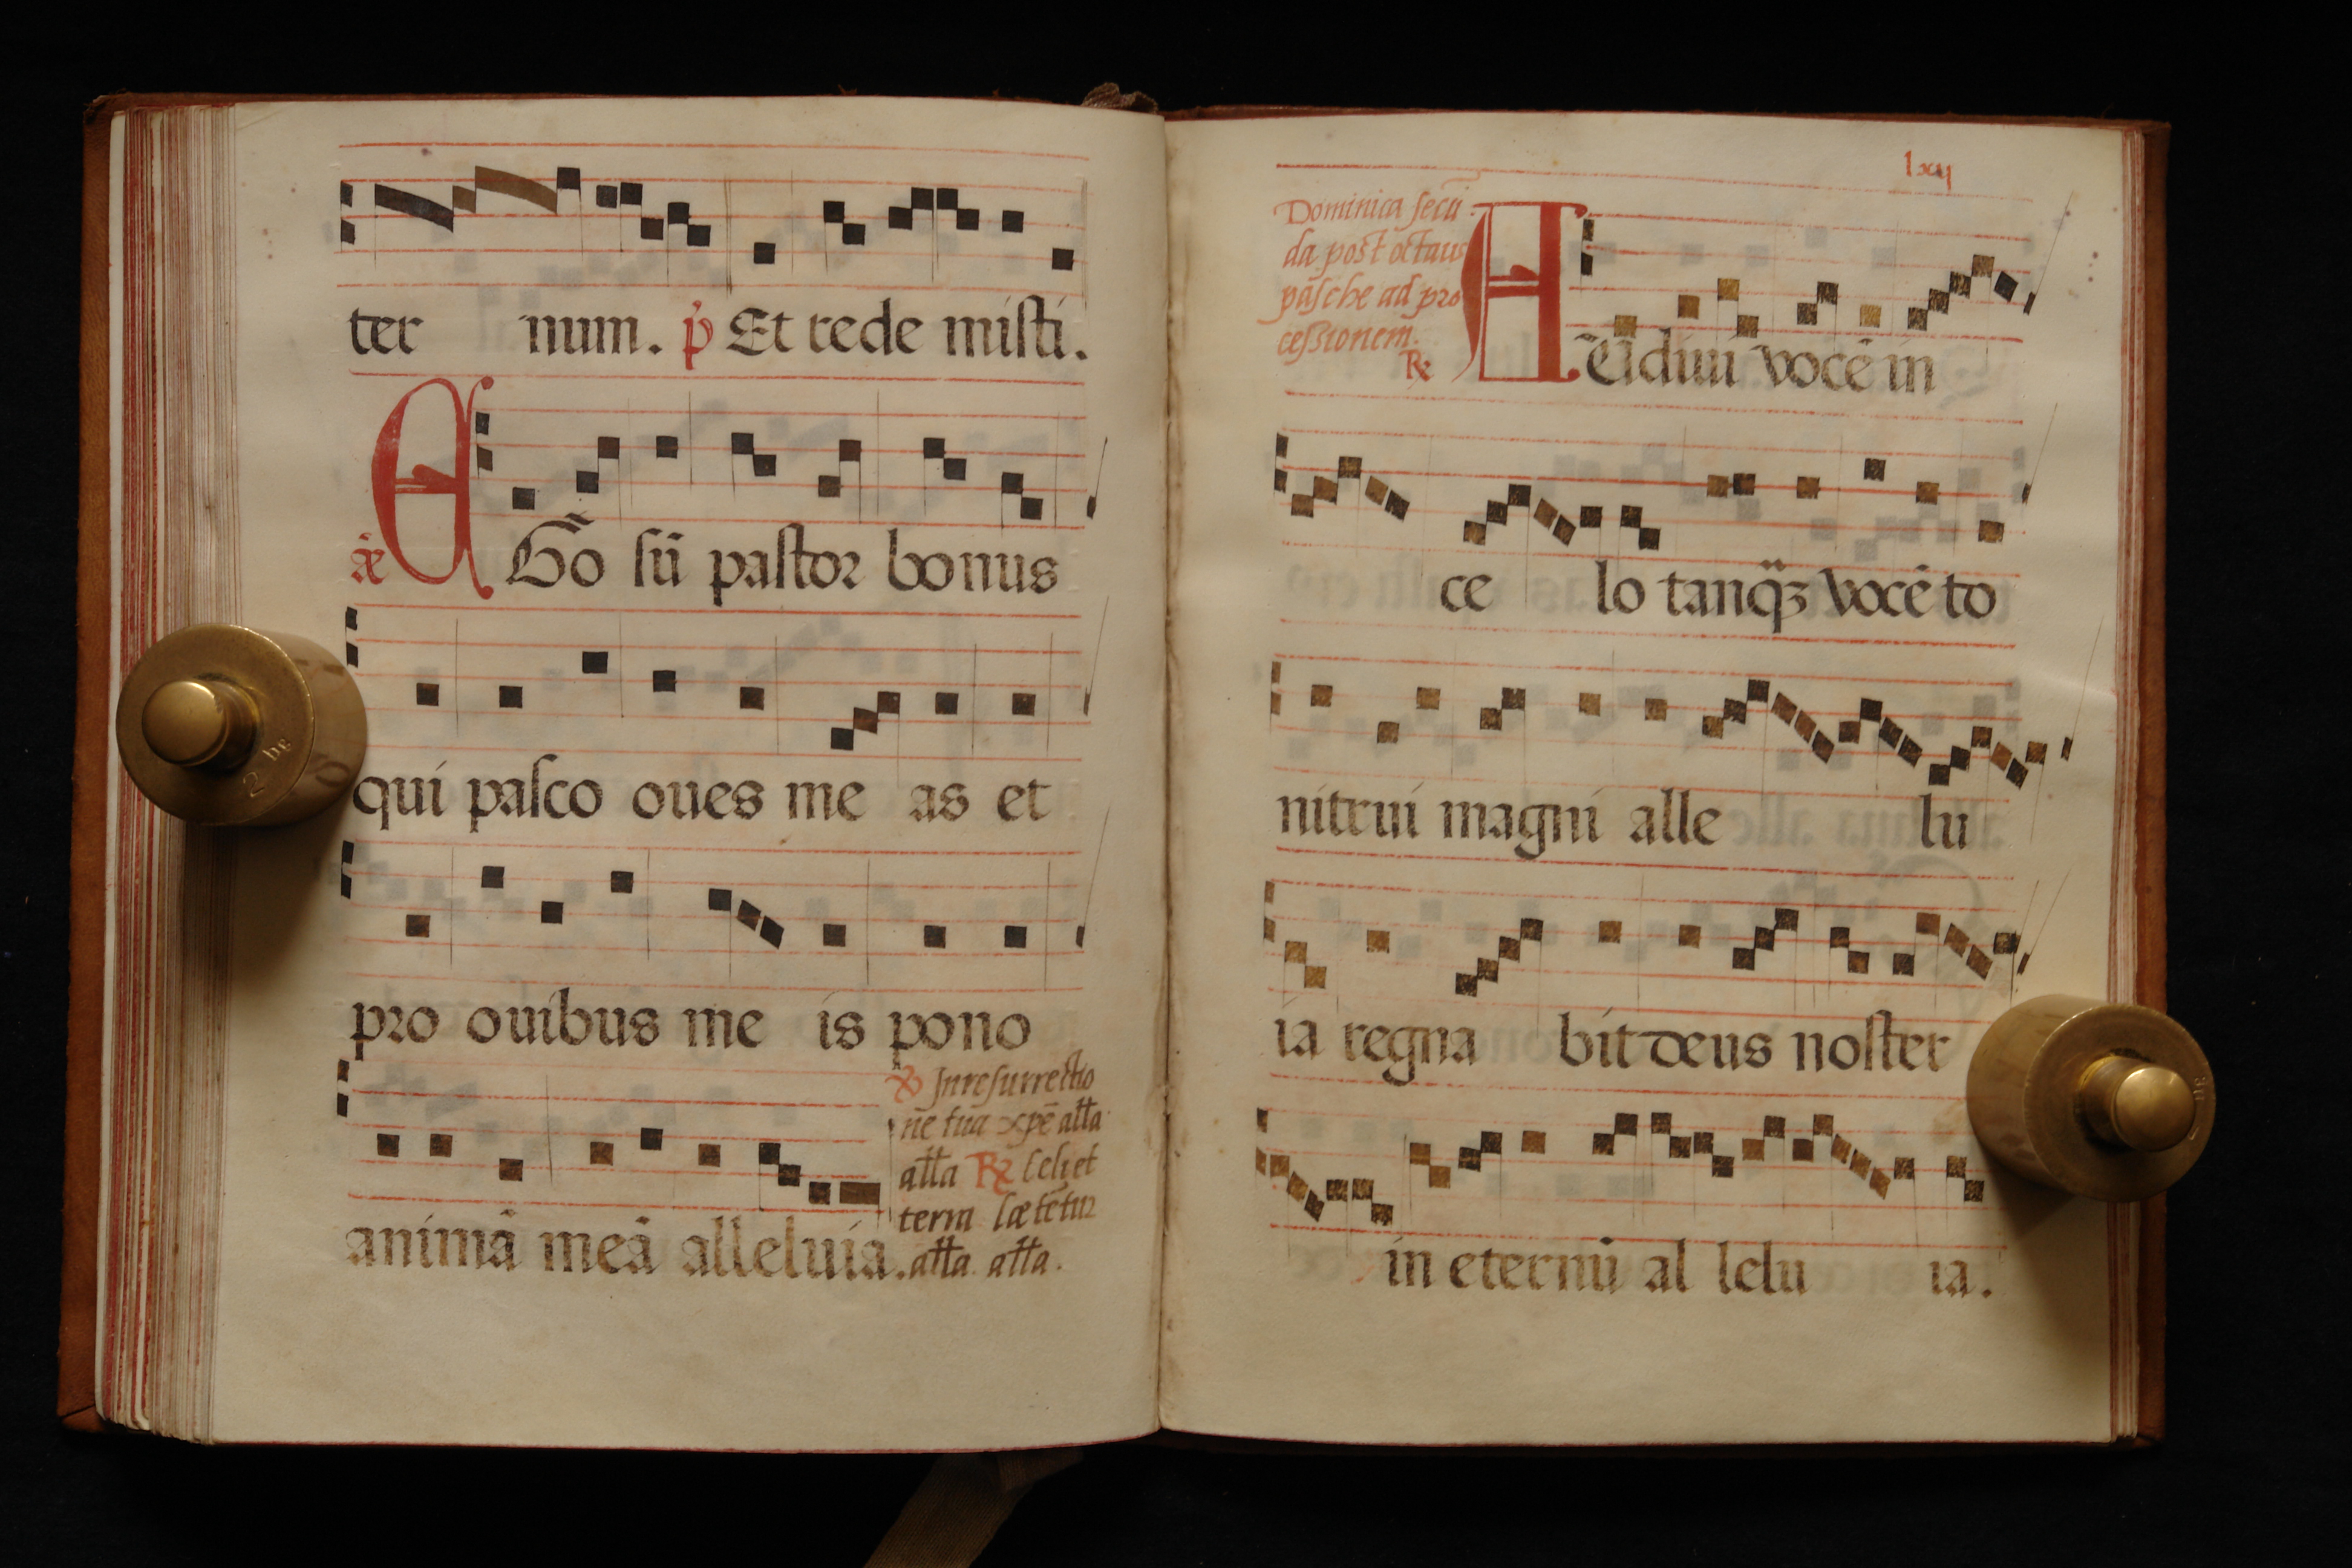 ter num. p̄ Et rede misti.
añ EGo sū pastor bonus
qui pasco oues me as et
pro ouibus me is pono
animā meā alleluia.
℣ In resurrectio
ne tua xp̄e alła
alła ℟ Celi et
terra lætētur
alła. alła.
lxij
Dominica secū
da post octauā
pasche ad pro
cessionem.
℟
AUdiui vocē in
ce lo tanq̄ꝫ vocē to
nitrui magni alle lu
ia regna bit deus noster
in eternū al lelu ia.
2 hg